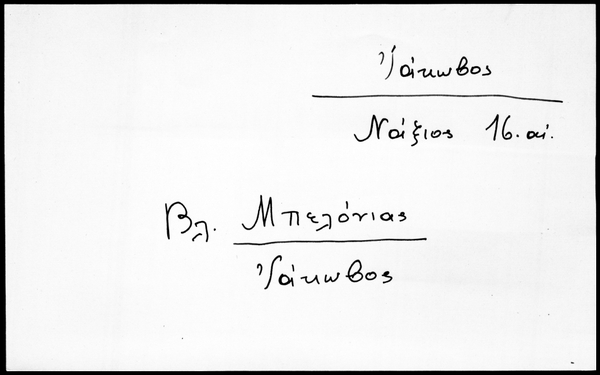 Ἰάκωβος
Νάξιος 16. αἰ.
Βλ. Μπελόνιας
Ἰάκωβος